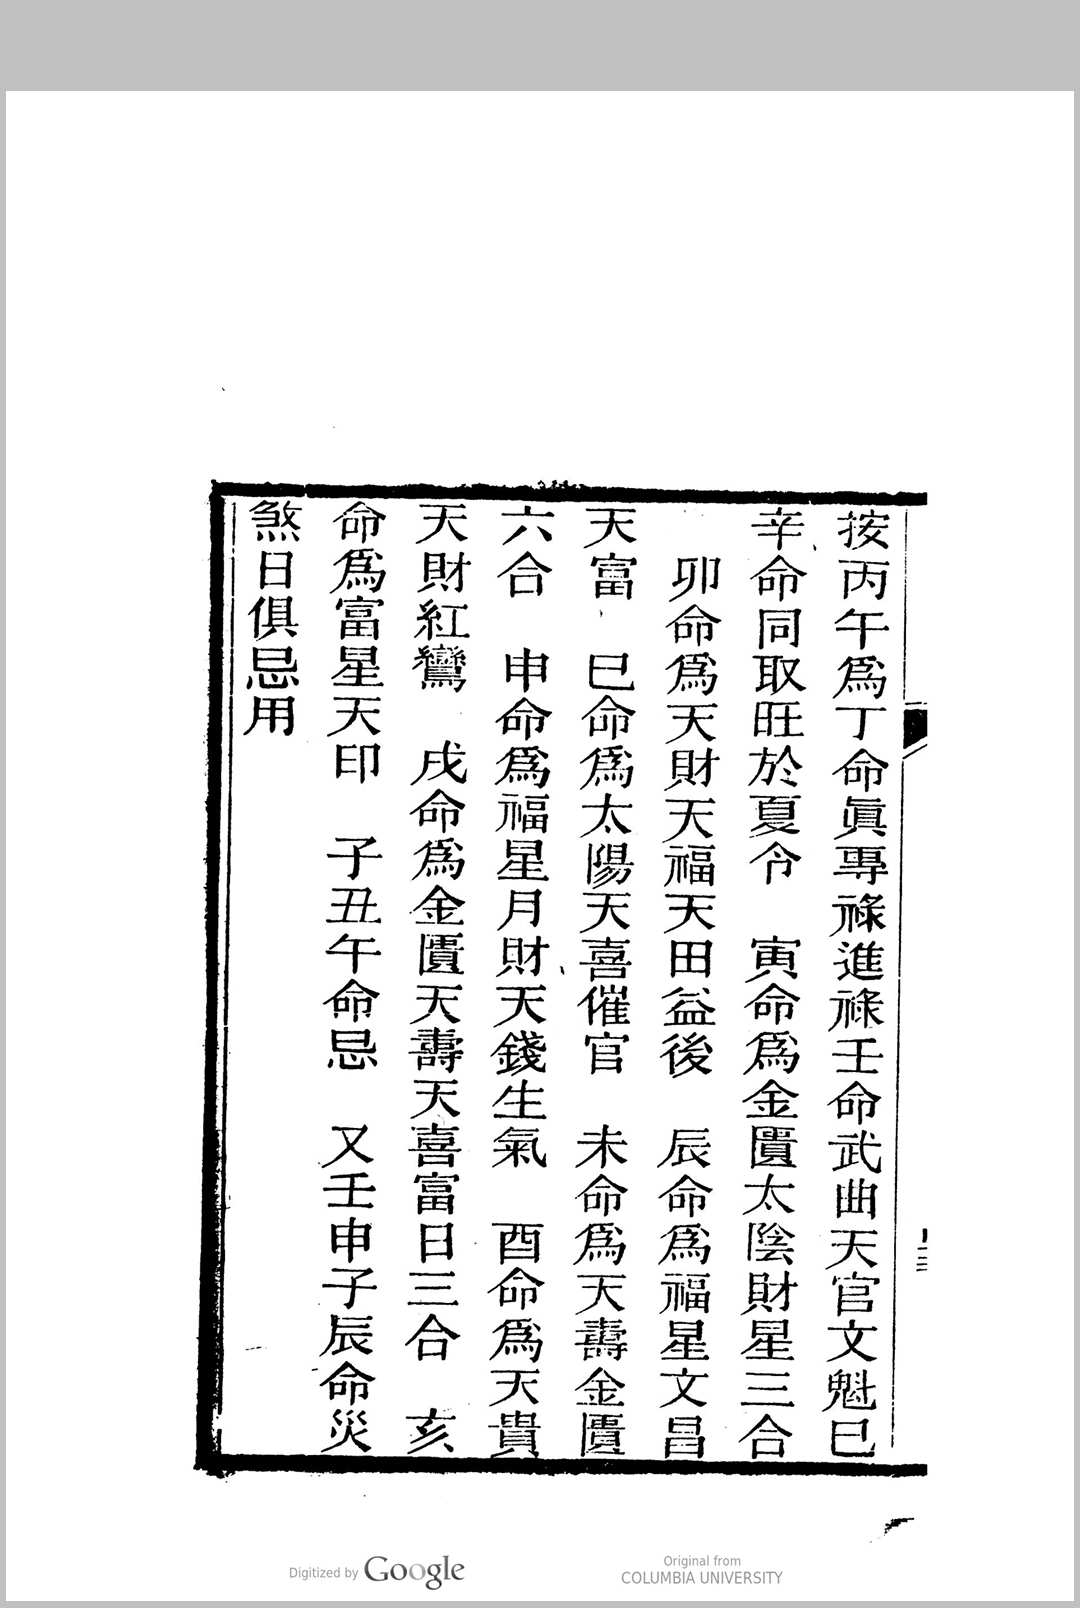 按丙午爲丁命眞專祿進祿壬命武曲天官文魁巳
辛命同取旺於夏令　寅命爲金匱太陰財星三合
卯命爲天財天福天田益後　辰命爲福星文昌
天富　巳命爲太陽天喜催官　未命爲天壽金匱
六合　申命爲福星月財天錢生氣　酉命爲天貴
天財紅鸞　戌命爲金匱天壽天喜富日三合　亥
命爲富星天印　子丑午命忌　又壬申子辰命災
煞日俱忌用
Digitized by Google
Original from
COLUMBIA UNIVERSITY